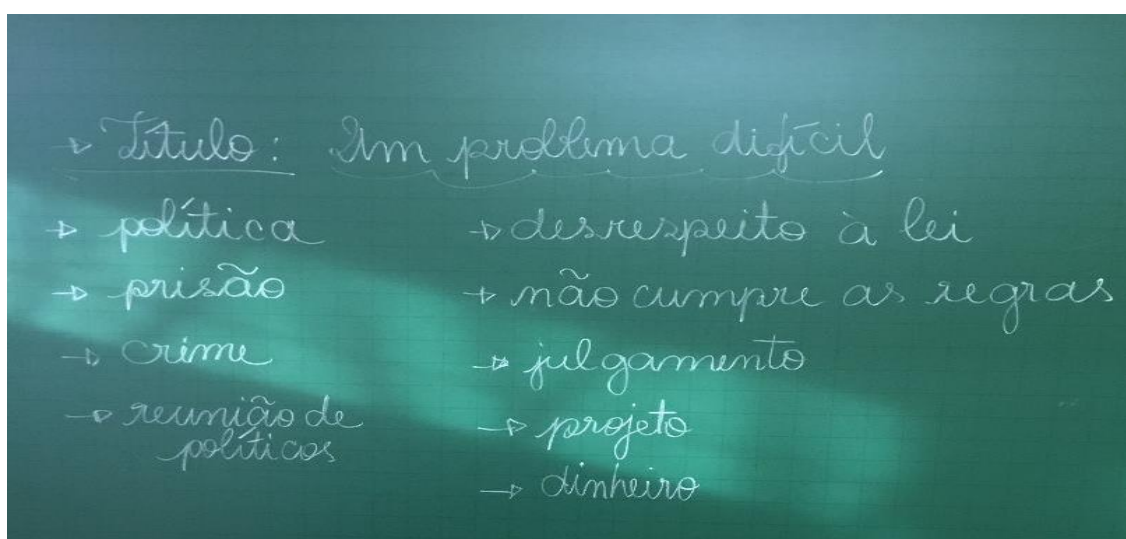 → Título: Um problema difícil
→ política
→ prisão
→ crime
→ reunião de
políticos
→ desrespeito à lei
→ não cumpre as regras
→ julgamento
→ projeto
→ dinheiro